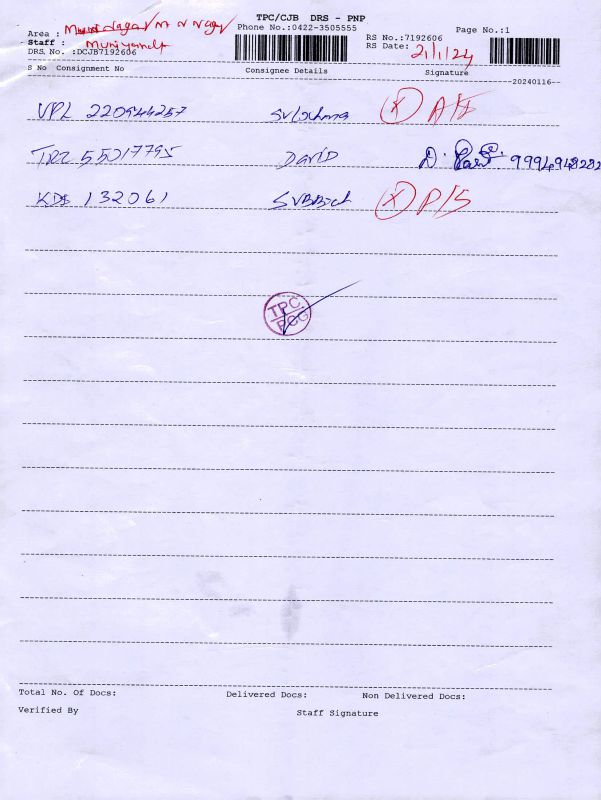 TPC/CJB DRS - PNP
Phone No.:0422-3505555
Page No.:1
Area :
Staff :
DRS No. :DCJB7192606
RS No.:7192606
RS Date: 2/1/24
S No Consignment No Consignee Details Signature
20240116
VPL 220944257
TRZ 55017795 David 9994948282
KDS 132061 P/S
TPC
PCG
Total No. Of Docs: Delivered Docs: Non Delivered Docs:
Verified By Staff Signature